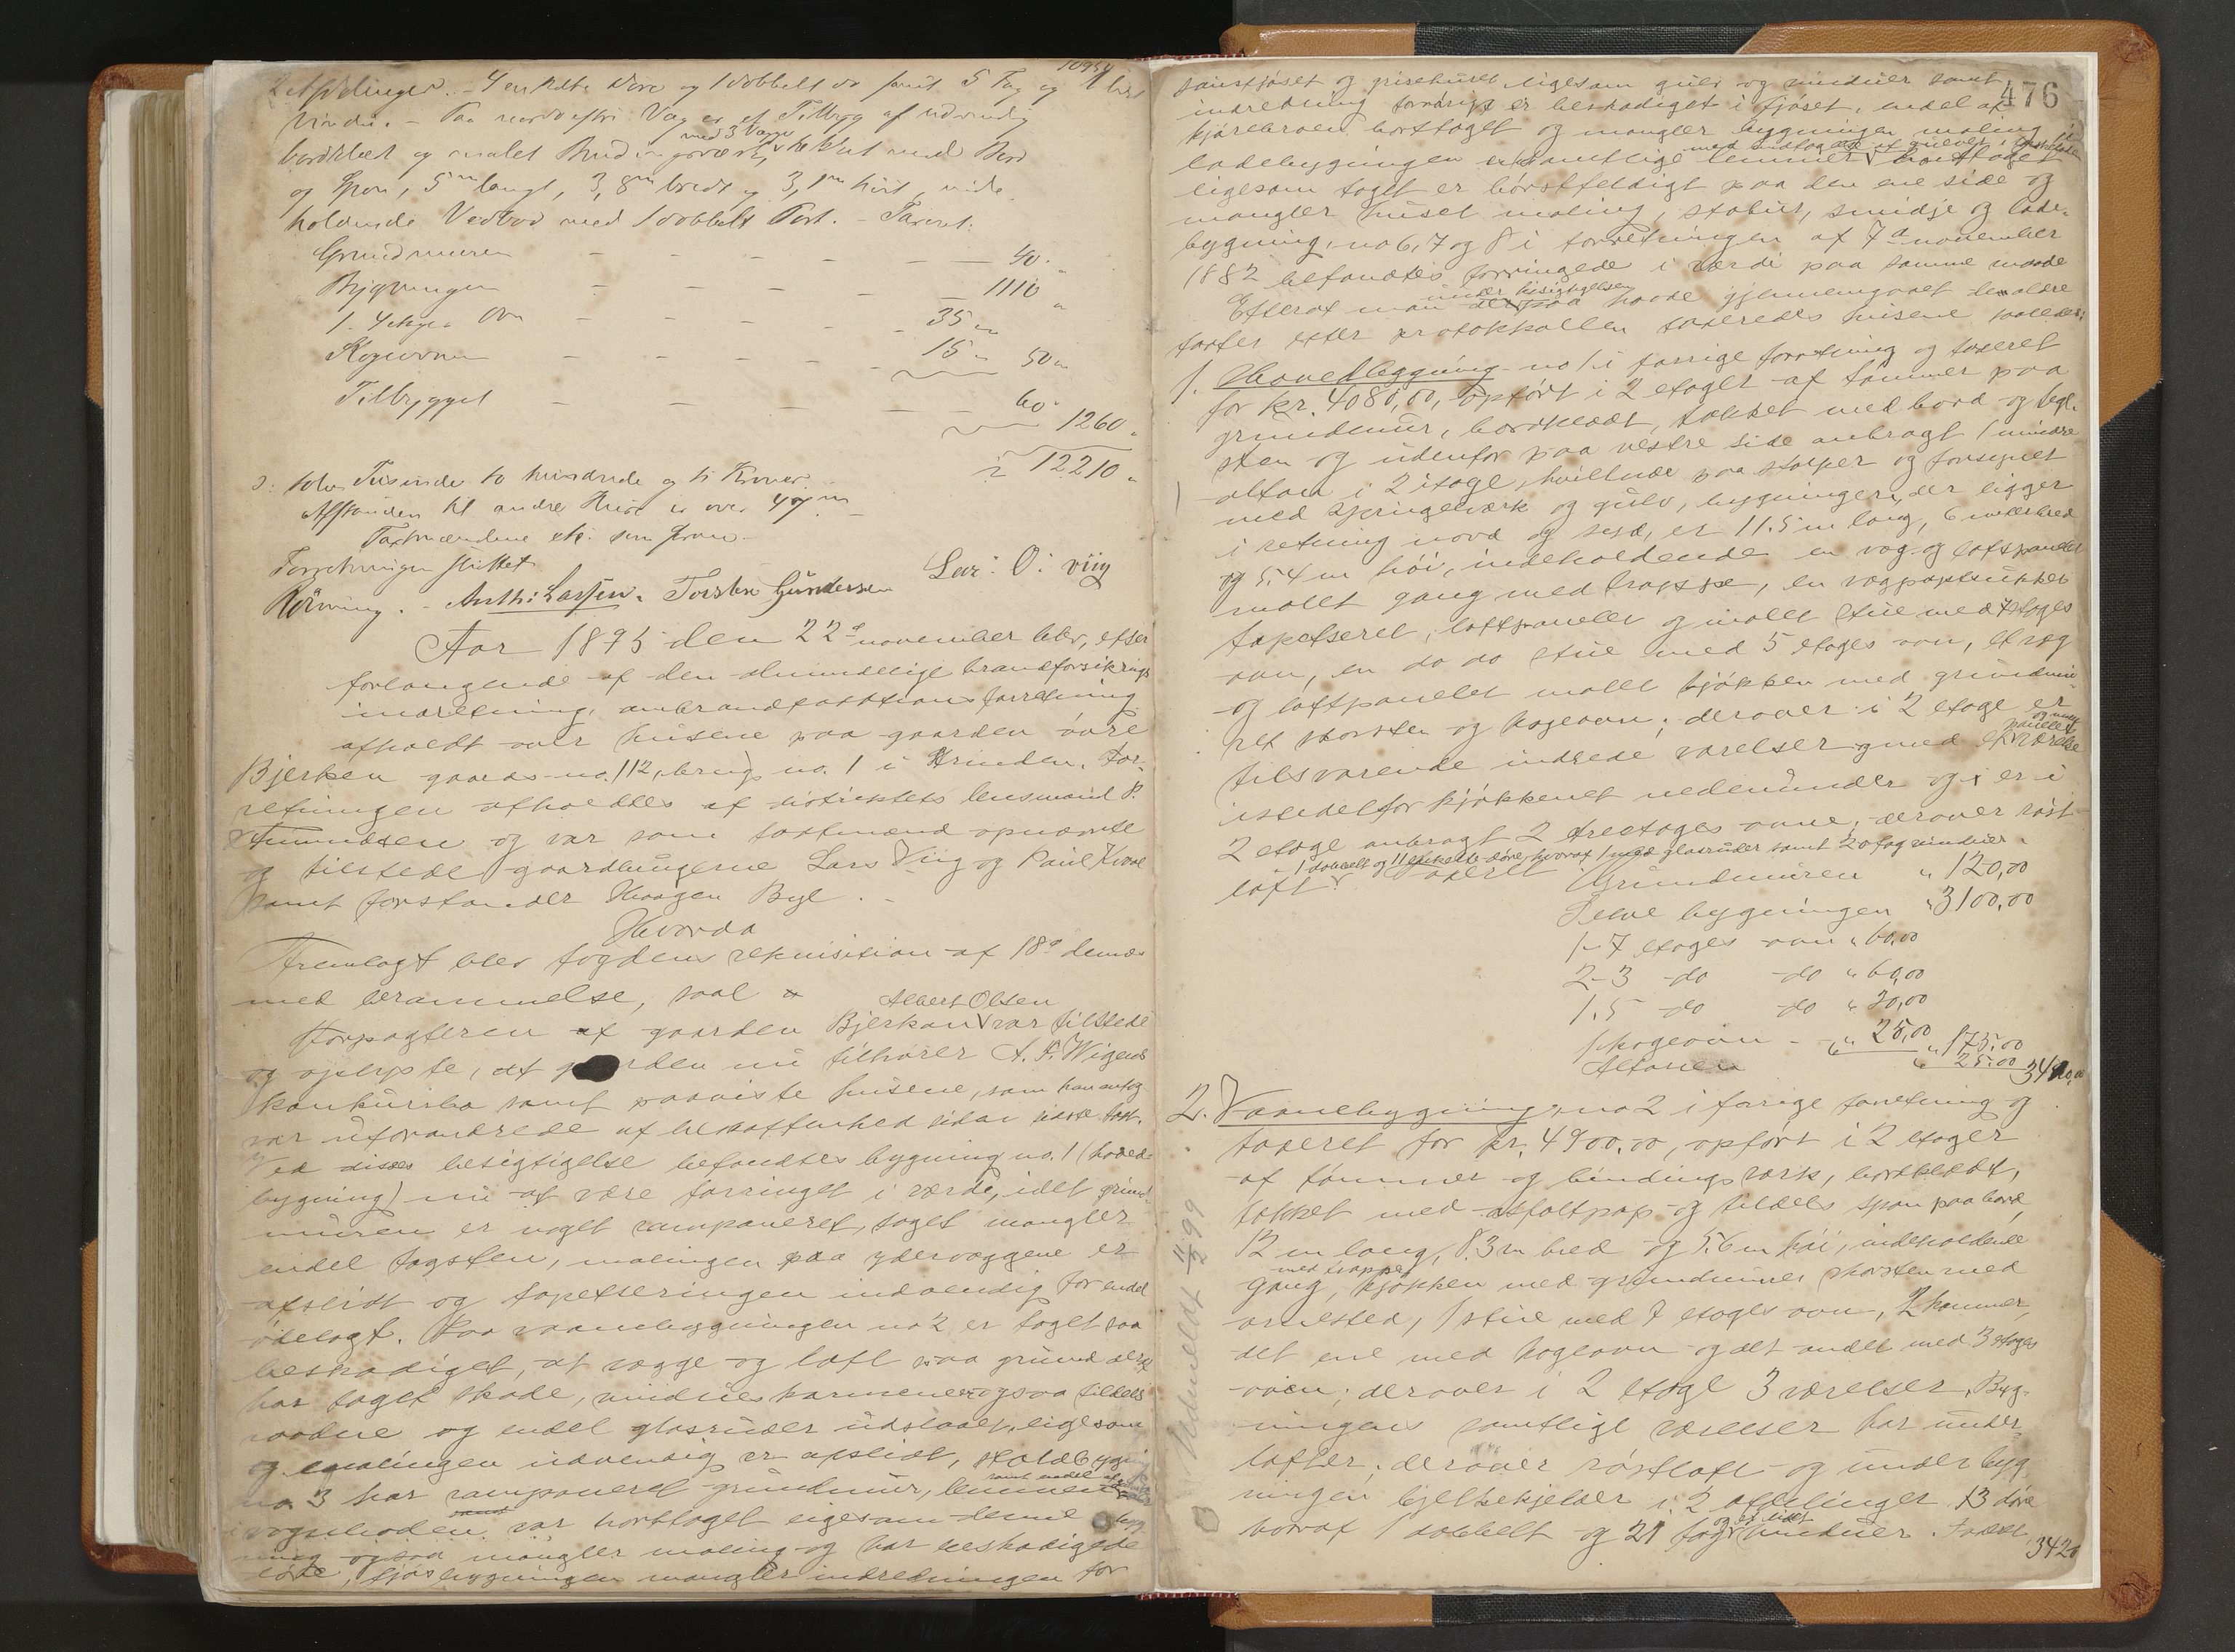 10950
2 Afdelinger. – 4 enkelte Døre og 1 dobbelt do samt 5 Fag og
Vindu. – Paa nordvestre Væg er et Tilbyg af udvendig
bordklædt og malet Bindingsværk, med 3 Vægge tækket med Bord
og Spon, 5 m langt, 3,8 m bredt og 3,1 m høit, inde-
holdende Vedbod med 1 dobbelt Port. – Taxeret:
Grundmuren – – – – – 40 "
Bygningen – – – – – 1110 "
1. 4 etages Ovn – – – – 35 "
Kogeovnen – – – – 15 " 50 "
Tilbygget – – – – 60 "
1260 "
12210 "
ɔ: tolv Tusinde to hundrede og ti Kroner.
Afstanden til andre Huse er over 47 m
Taxtmændene etc. som foran.
Forretningen sluttet
Anth: Larsen. Torsten Gundersen Lar: O: viig
Aar 1895 den 22de november blev, efter
forlangende af den almindelige brandforsikrings
indretning, ombrandtaxtionsforretning
afholdt over husene paa gaarden øvre
Bjerken gaards-no. 112, brugs no. 1 i Strinden. For-
retningen afholdtes af distriktets lensmand P.
Amundsen og var som taxtmænd opnævnte
og tilstede gaardbrugerne Lars Viig og Paul Kvaal
samt forstander Haagen Bye.
Hvorda
Fremlagt blev fogdens rekvisition af 18de dennes
med berammelse, saal.
Forpagteren af gaarden Bjerkan Albert Olsen var tilstede
og oplyste, at gaarden nu tilhører A. F. Wigens
konkursbo samt paaviste husene, som han antog
var uforandrede af beskaffenhed siden sidste taxt.
Ved disses besigtigelse befandtes bygning no. 1 (hoved-
bygning) nu at være forringet i værdi, idet grund-
muren er noget ramponeret, taget mangler
endel tagsten, malingen paa ydervæggene er
afslidt og tapetseringen indvendig for endel
ødelagt. Paa vaanebygningen no 2 er taget saa
beskadiget, at vægge og loft paa grund deraf
har taget skade, vindueskarmene ogsaa tildels
raadne og endel glasruder udslaaet, ligesom
og malingen udvendig er afslidt, staldbygning
no. 3 har ramponeret grundmur, lemmen samt endel af
vognboden var borttaget ligesom denne byg-
ning ogsaa mangler maling og har beskadigede
døre, fjøsbygningen mangler indredningen for
476
sauefjøset og grisehuset ligesom gulv og vinduer samt
indredning forøvrigt er beskadiget i fjøset, endel af
kjørebroen borttaget og mangler bygningen maling i
ladebygningen er samtlige lemmer med undtagelse af gulvet i borttaget
ligesom taget er børstfeldigt paa den ene side og
mangler huset maling, stabur, smidje og lade-
bygning, no 6, 7 og 8 i forretningen af 7de november
1882 befandtes forringede i værdi paa samme maade
Efterat man under besigtigelsen havde gjennemgaaet de ældre
taxter efter protokollen taxeredes husene saaledes:
1. Hovedbygning no 1 i forrige forretning og taxeret
for kr. 4080,00, opført i 2 etager af tømmer paa
grundmur, bordklædt, tækket med bord og tegl-
sten og udenfor paa vestre side anbragt 1 mindre
altan i 2 etage, hvilende paa stolper og forsynet
med springeværk og gulv, bygningen, der ligger
i retning nord og syd, er 11.5 m lang, 6 meter bred
og 5.4 m høi, indeholdende en væg- og loftpanelet
malet gang med trappe, en vægpaptrukket
tapetseret, loftpanelet og malet stue med 7 etages
ovn, en do do stue med 5 etages ovn, et væg
og loftpanelet malet kjøkken med grundmu-
ret skorsten og kogeovn; derover i 2 etage er
tilsvarende indrede værelser med et panelet og malet værelse
istedetfor kjøkkenet nedenunder og er i
2 etage anbragt 2 treetages ovne; derover røst-
loft, 1 dobbelt og 11 enkelte døre, hvoraf 1 med glasruder samt 20 fag vinduer. Taxeret
Grundmuren " 120,00
Selve bygningen " 3100,00
1 – 7 etages ovn " 60,00
2 – 3 do do " 60,00
1. 5 do do " 30,00
1 kogeovn – " 25,00 " 175.00
Altanen " 25.00 3420,00
2. Vaanebygning no 2 i forrige forretning og
taxeret for kr. 4900.00, opført i 2 etager
af tømmer og bindingsværk, bordklædt,
tækket med asfaltpap og tildels spon paa bord,
12 m lang, 8.3 m bred og 5.6 m høi, indeholdende
gang med trappe, kjøkken med grundmuret skorsten med
arnested, 1 stue med 7 etages ovn, 2 kammer,
det ene med kogeovn og det andet med 3 etages
ovn; derover i 2 etage 3 værelser. Byg-
ningens samtlige værelser har under-
lofter, derover røstloft og under byg-
ningen hjelkekjelder i 2 afdelinger 13 døre
hvoraf 1 dobbelt og 21 fag og et lidet vinduer. Taxeret
3420
Udmeldt 99